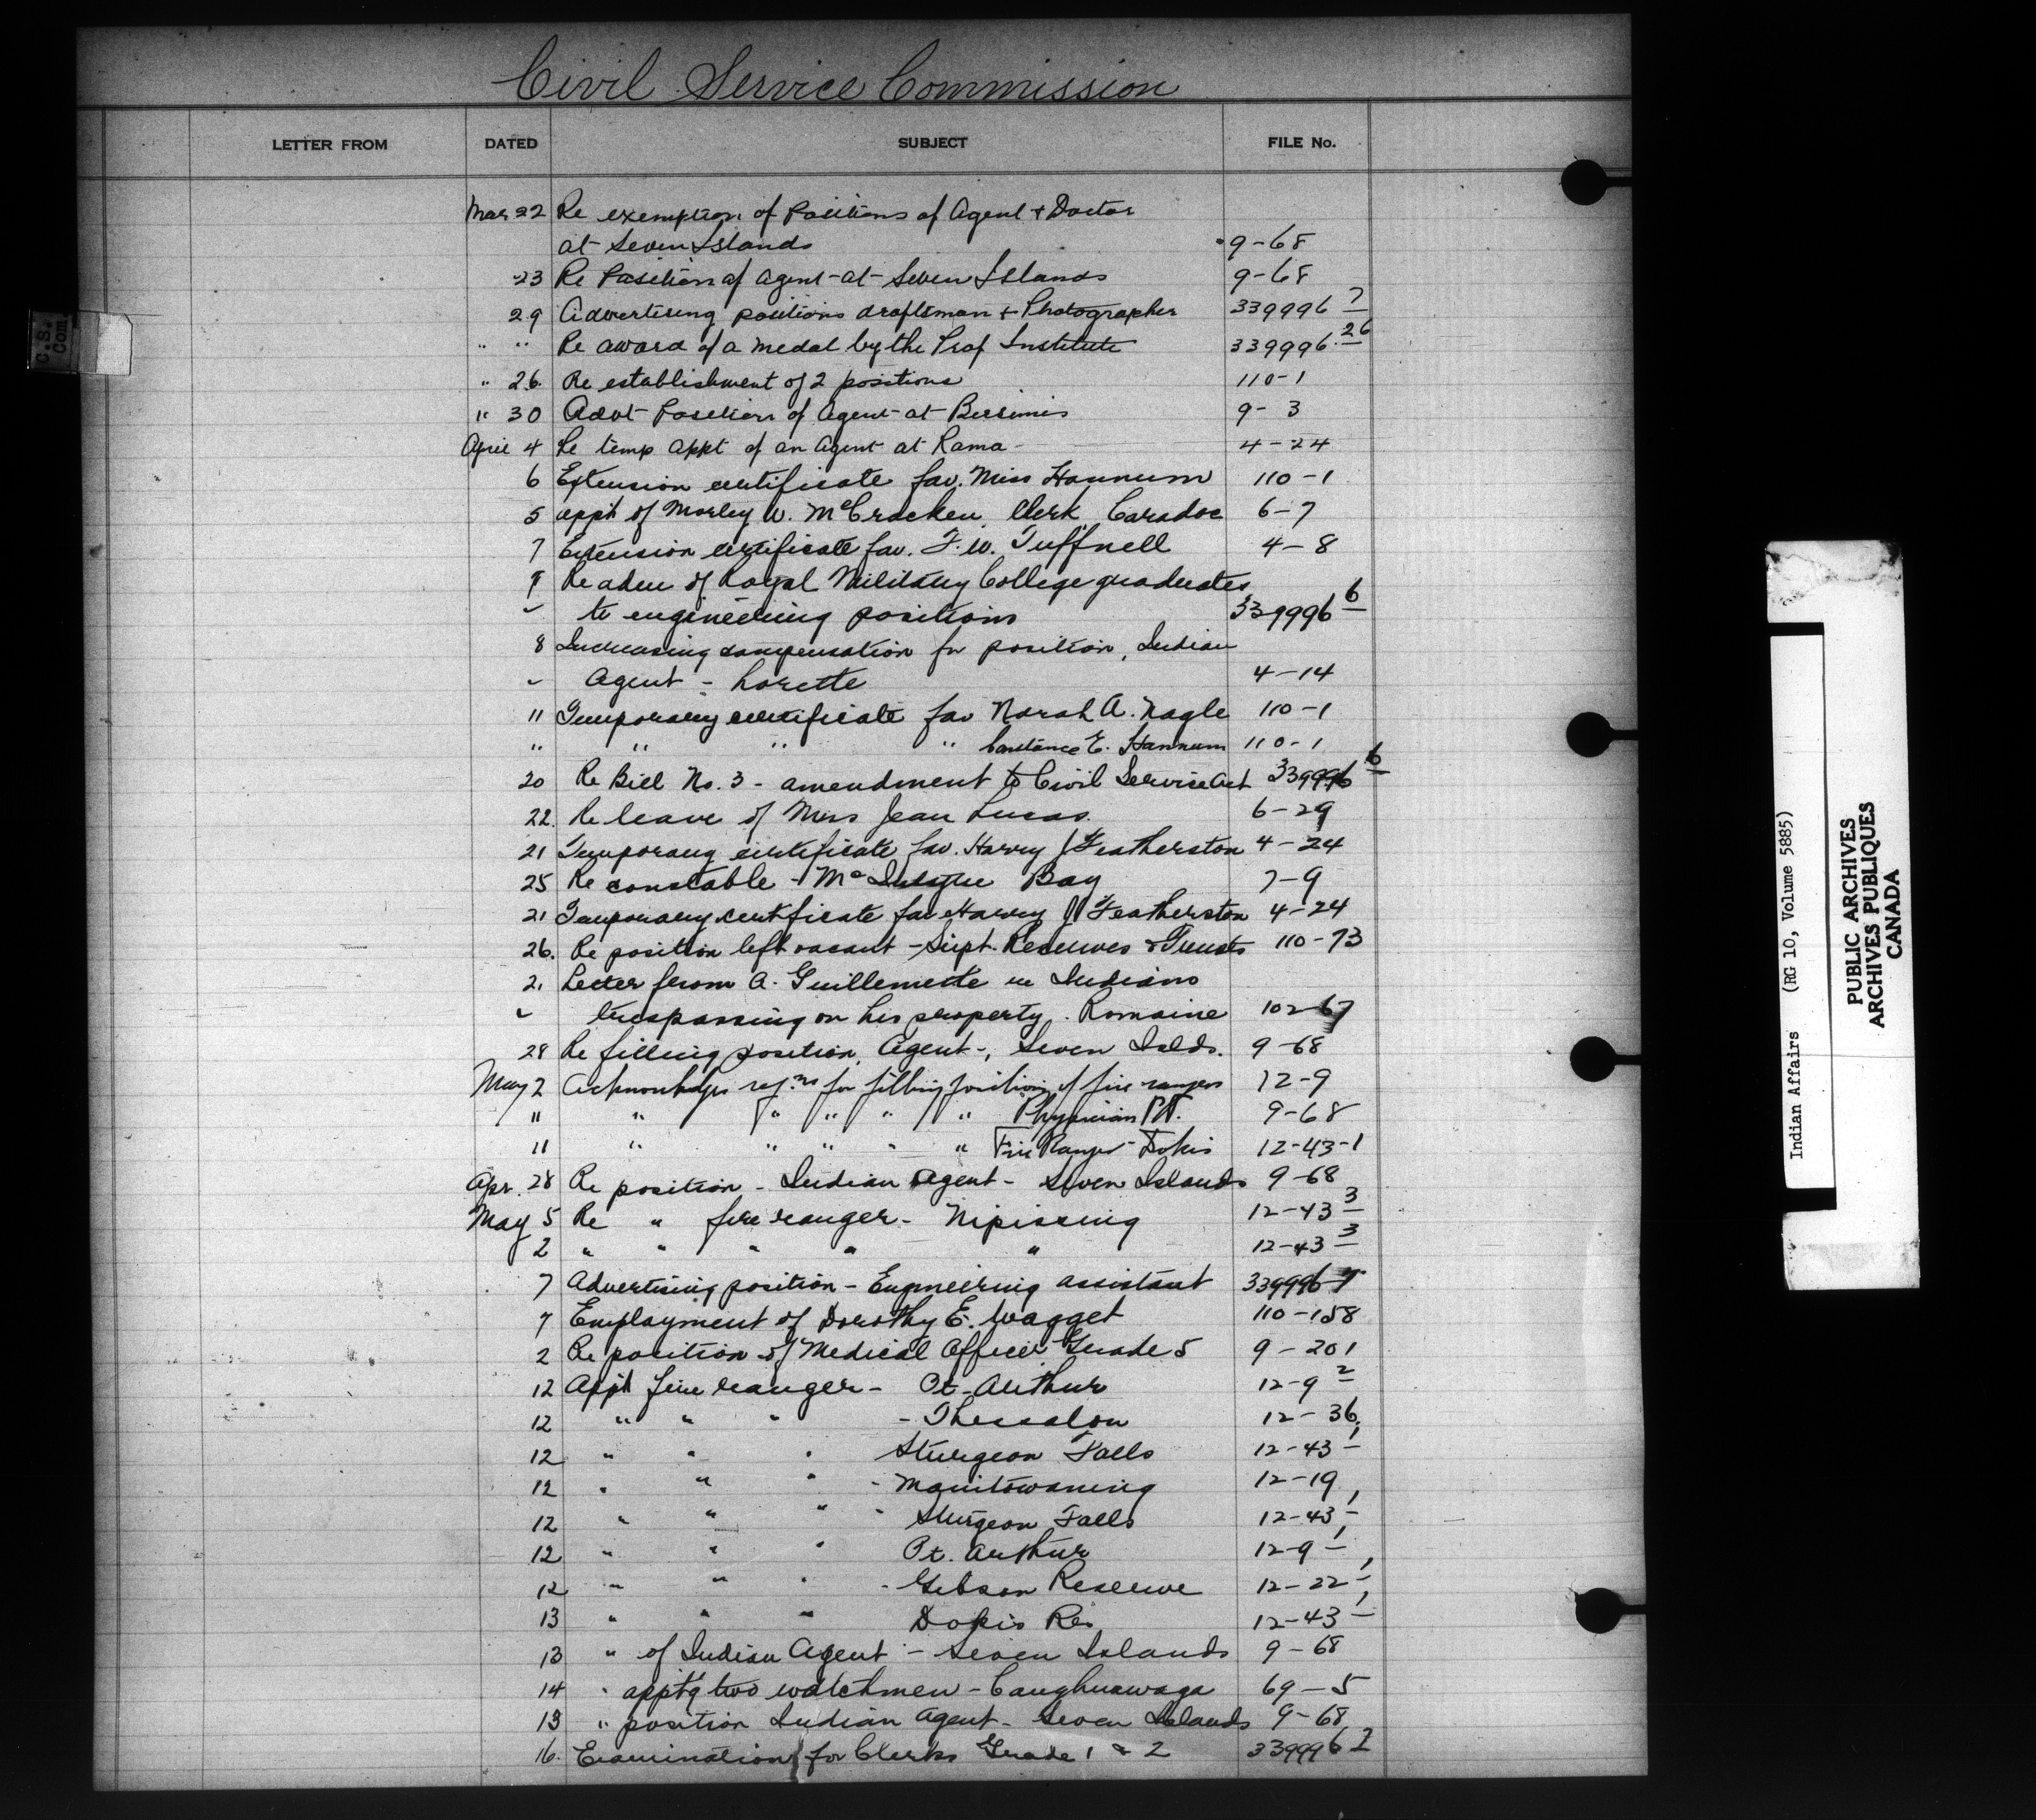 Civil Service Commission
LETTER FROM DATED SUBJECT FILE No.
Mar 22 Re exemption of Positions of Agent + Doctor
at Seven Islands 9-68
23 Re Position of Agent at Seven Islands 9-68
29 Advertising positions draftsman + Photographer 339996 7
" " Re award of a medal by the Prof Institute 339996 26
" 26 Re establishment of 2 positions 110-1
" 30 Advt Position of Agent at Bersimis 9-3
April 4 Re temp appt of an Agent at Rama 4-24
6 Extension certificate fav. Miss Hannum 110-1
5 appt of Morley W. McCracken Clerk Caradoc 6-7
7 Extension certificate fav. F. W. Tuffnell 4-8
9 Re adm of Royal Military College graduates
" to engineering positions 339996 6
8 Increasing compensation for position, Indian
" Agent - Lorette 4-14
11 Temporary certificate fav Norah A. Nagle 110-1
" " " " Constance E. Hannum 110-1
20 Re Bill No. 3 - amendment to Civil Service Act 339996 6
22. Re leave of Miss Jean Lucas. 6-29
21 Temporary certificate fav. Harvey J Featherston 4-24
25 Re constable - McIntyre Bay 7-9
21 Temporary certificate fav Harvey J Featherston 4-24
26. Re position left vacant - Supt. Reserves & Trusts 110-73
2, Letter from A. Guillemette re Indians
" trespassing on his property. Romaine 102-67
28 Re filling position, Agent -, Seven Islds. 9-68
May 2 Acknowledges for filling positions of fire rangers 12-9
11 " " " " " " Physician P.T. 9-68
11 " " " " " Fire Ranger - Dokis 12-43-1
Apr. 28 Re position - Indian Agent - Seven Islands 9-68
May 5 Re " fire ranger - Nipissing 12-43 3
2 " " " " " 12-43 3
7 Advertising position - Engineering assistant 339996-7
7 Employment of Dorothy E. Wagget 110-158
2 Re position of Medical Officer Grade 5 9-201
12 Appt fire ranger - Pt. Arthur 12-9 2
12 " " " - Thessalon 12-36
12 " " " Sturgeon Falls 12-43 1
12 " " " - Manitowaning 12-19
12 " " " - Sturgeon Falls 12-43 1
12 " " " Pt. Arthur 12-9 1
12 " " " - Gibson Reserve 12-22 1
13 " " " Dokis Res 12-43 1
13 " of Indian Agent - Seven Islands 9-68
14 " apptg two watchmen - Caughnawaga 69-5
13 " position Indian Agent - Seven Islands 9-68
16. Examination for Clerks Grade 1 & 2 339996 2
C.S. Com.
Indian Affairs (RG 10, Volume 5885)
PUBLIC ARCHIVES
ARCHIVES PUBLIQUES
CANADA